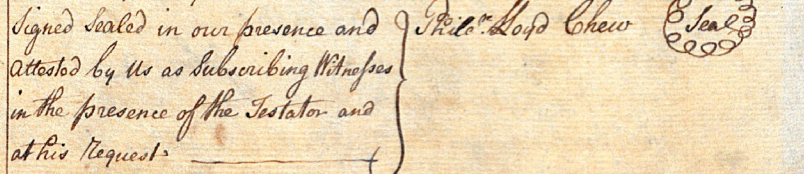 Signed Sealed in our presence and
attested by Us as Subscribing Witnesses
in the presence of the Testator and
at his Request.
Phile.r Lloyd Chew
Seal